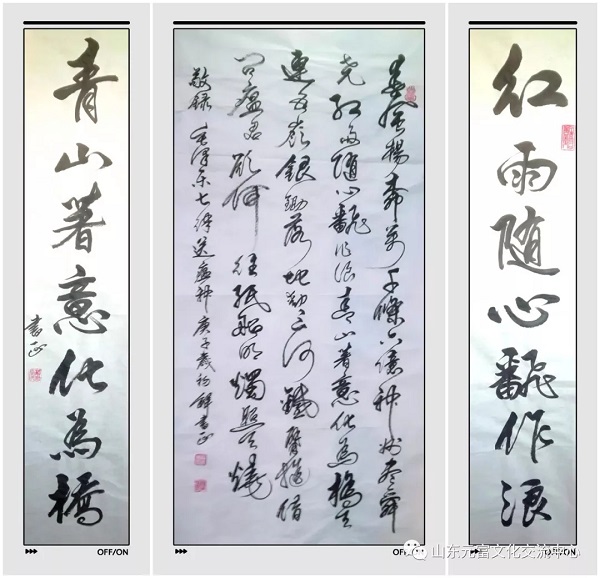 红雨随心飜作浪
春風楊柳萬千條六億神州盡舜
尧红雨随心飜作浪青山著意化為橋天
連五嶺銀鋤落地動三河鐵臂摇借
问瘟君欲何往纸船明燭照天燒
敬録毛泽东七律送瘟神庚子歲初薛書正
青山著意化為橋
書正
OFF/ON
OFF/ON
OFF/ON
山东元富文化交流中心